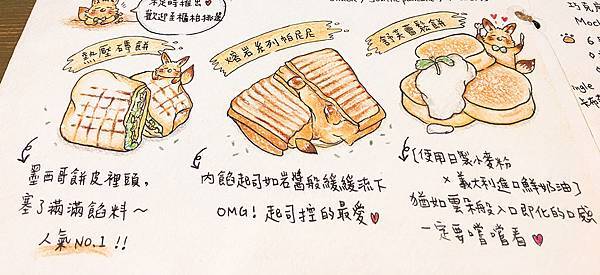 不定時推出
歡迎至櫃枱挑選
熱壓磚餅
熔岩系列帕尼尼
舒芙蕾鬆餅
墨西哥餅皮裡頭,
塞了滿滿餡料~
人氣NO.1 !!
內餡起司如岩醬般緩緩流下
OMG! 起司控的最愛♥
[使用日製小麥粉
× 義大利進口鮮奶油]
猶如雲朵般入口即化的口感
一定要嚐嚐看♥
Moch
ingle